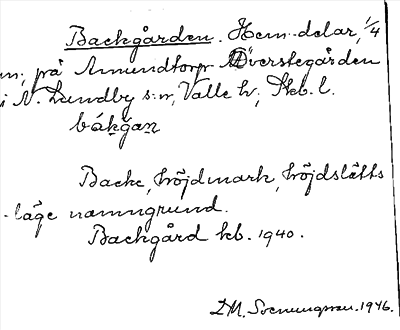 Backgården. Hem. delar, 1/4
m; på Amundtorp Överstegården
i N. Lundby s:n, Valle h; Skb. l.
bákgan
Backe, höjdmark, höjdslätts
-läge namngrund.
Backgård kb. 1940.
D.M. Svenungsson. 1946.